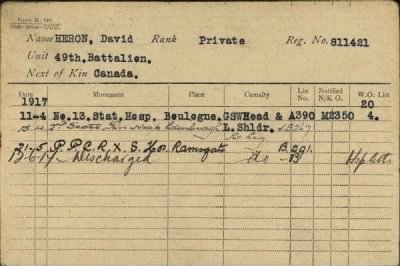 Form B. 
Name HERON, David Rank Private Reg. No. 811421
Unit 49th, Battalion.
Next of Kin Canada.
Date Movement Place Casualty List No. Notified N/K O. W.O. List
1917 20
11-4 No. 13, Stat, Hosp, Boulogne. GSWHead & A390 M2350 4.
L. Shldr.
21-5 P.P.C.R.X.S. Hos. Ramsgate do B.291.
13-6-17 Discharged do